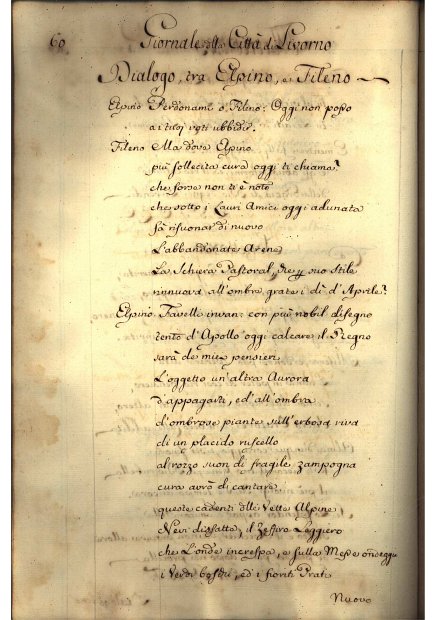 60 Giornale della Città di Livorno
Dialogo, tra Elpino, e Fileno
Elpino Perdonami o Fileno: Oggi non posso
a i tuoi voti ubbidir.
Fileno Ma dove Elpino
più sollecita cura oggi ti chiama?
che forse non ti è noto
che sotto i Lauri Amici oggi adunata
fà risuonar di nuovo
L'abbandonate Arene
La Schiera Pastoral, che p suo stile
rinnuova all'ombre grate i dì d'Aprile?
Elpino Favelli invan: con più nobil disegno
tento d'Apollo oggi calcare il Regno
sarà de miei pensieri
L'oggetto un'altra Aurora
d'appagarti, ed all'ombra
d'ombrose piante sull'erbosa riva
di un placido ruscello
al rozzo suon di fragile zampogna
cura avrò di cantare
queste cadenti dlle Vette Alpine
Nevi disfatte, il Zeffiro Leggiero
che L'onde increspa, e sulla Messe
i Verdi boschi, ed i fioriti Prati
Nuovo